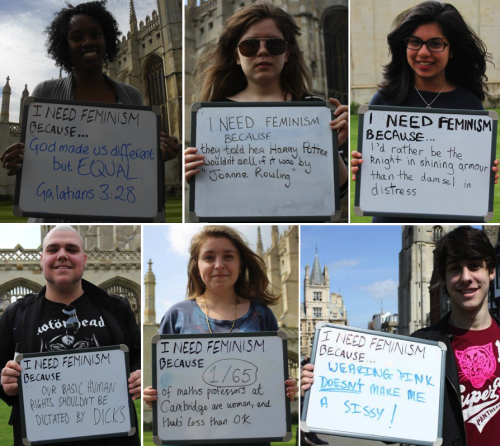 I NEED FEMINISM
BECAUSE...
God made us different
but EQUAL.
Galatians 3:28
I NEED FEMINISM
BECAUSE
they told her Harry Potter
wouldn't sell if it was by
"Joanne Rowling"
I NEED FEMINISM
BECAUSE...
I'd rather be the
Knight in shining armour
than the damsel in
distress
I NEED FEMINISM
BECAUSE
OUR BASIC HUMAN
RIGHTS SHOULDN'T BE
DICTATED BY DICKS
MOTÖRHEAD
I NEED FEMINISM
BECAUSE 1/65
of maths professors at
Cambridge are women, and
that's less than OK
I NEED FEMINISM
BECAUSE...
WEARING PINK
DOESNT MAKE ME
A SISSY!
Super